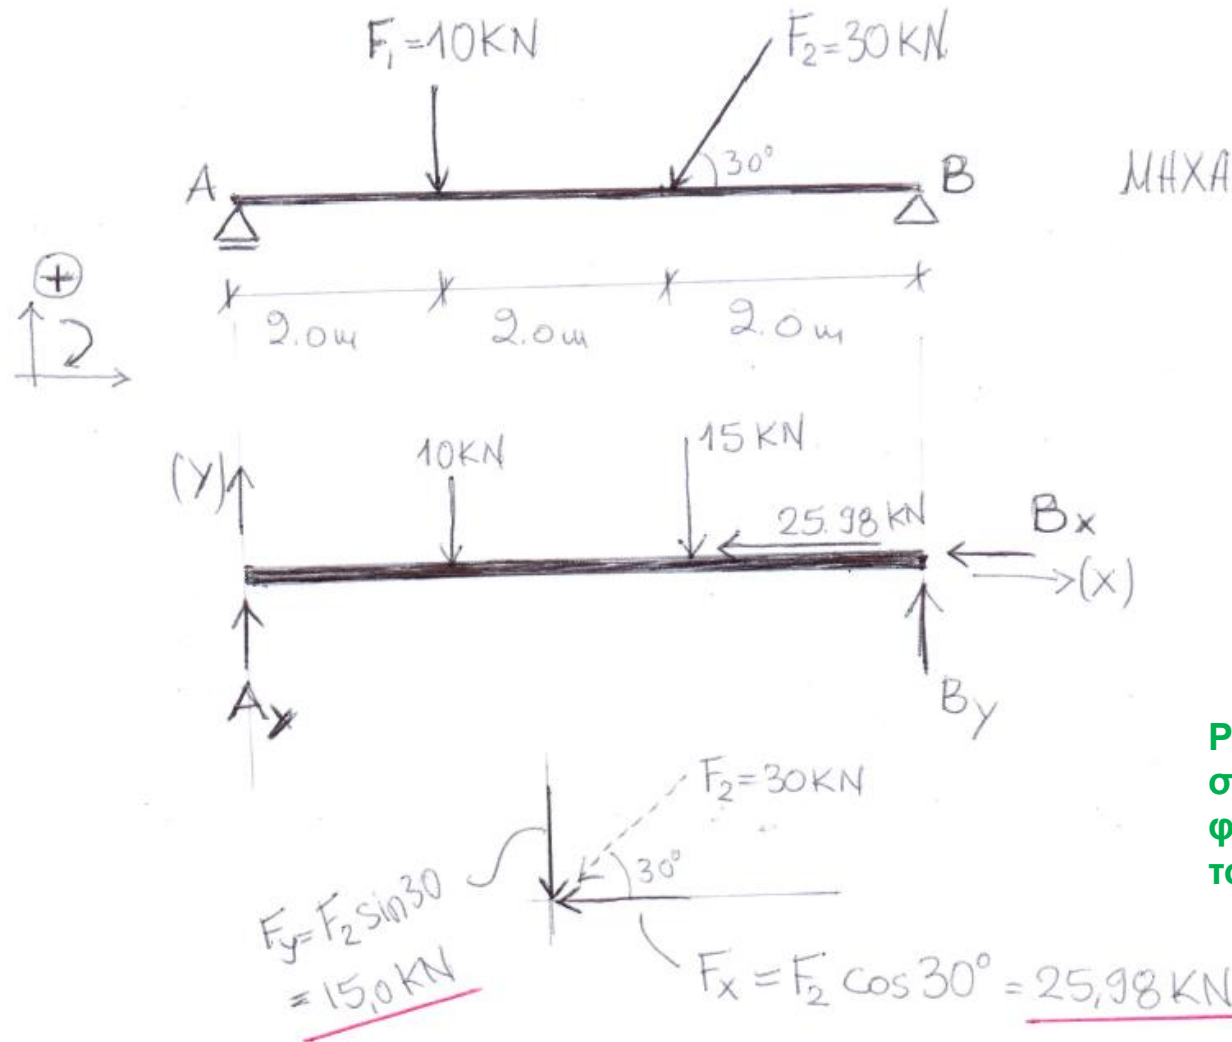 F₁=10KN
F₂=30KN
30°
A
B
ΜΗΧΑ
+
2.0m
2.0m
2.0m
(Y)
10KN
15KN
25.98KN
Bx
(x)
Ay
By
F₂=30KN
30°
Fy=F₂sin30
=15,0KN
Fx=F₂cos30°=25,98KN
Ρ
σ
φ
το